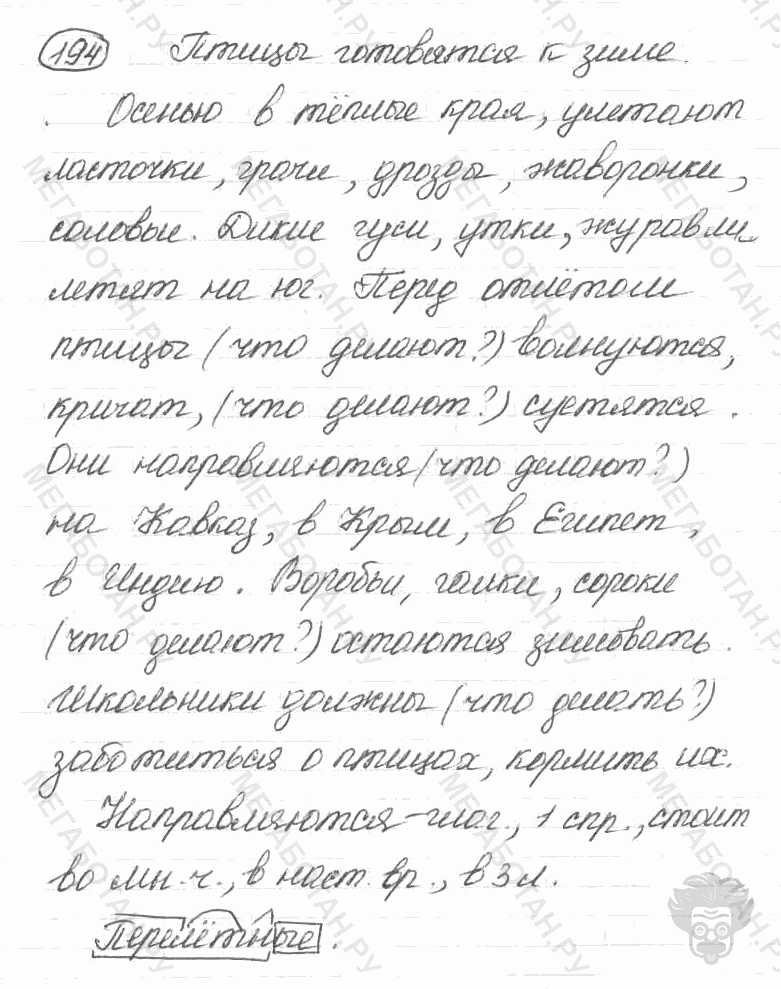 194 Птицы готовятся к зиме.
Осенью в тёплые края, улетают
ласточки, грачи, дрозды, жаворонки,
соловьи. Дикие гуси, утки, журавли
летят на юг. Перед отлётом
птицы (что делают?) волнуются,
кричат, (что делают?) суетятся.
Они направляются (что делают?)
на Кавказ, в Крым, в Египет,
в Индию. Воробьи, галки, сороки
(что делают?) остаются зимовать.
Школьники должны (что делать?)
заботиться о птицах, кормить их.
Направляются – глаг., 1 спр., стоит
во мн. ч., в наст. вр., в 3 л.
Перелётные.
МЕГАБОТАН.РУ